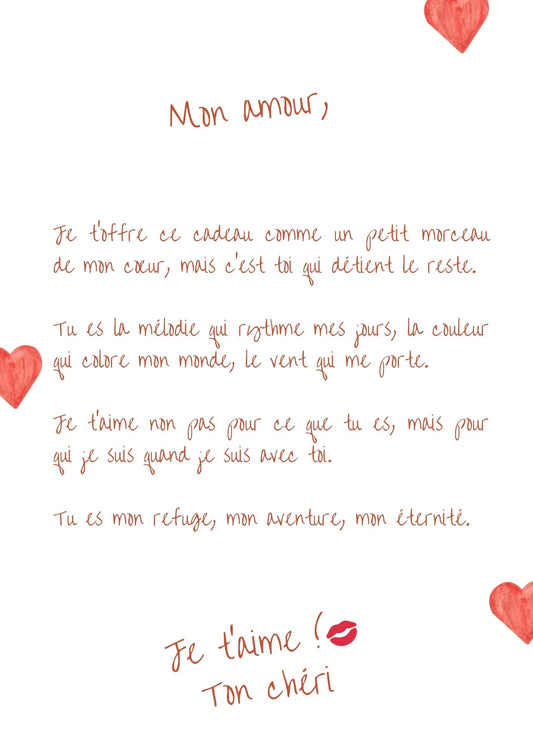 Mon amour,
Je t'offre ce cadeau comme un petit morceau
de mon cœur, mais c'est toi qui détient le reste.
Tu es la mélodie qui rythme mes jours, la couleur
qui colore mon monde, le vent qui me porte.
Je t'aime non pas pour ce que tu es, mais pour
qui je suis quand je suis avec toi.
Tu es mon refuge, mon aventure, mon éternité.
Je t'aime !
Ton chéri